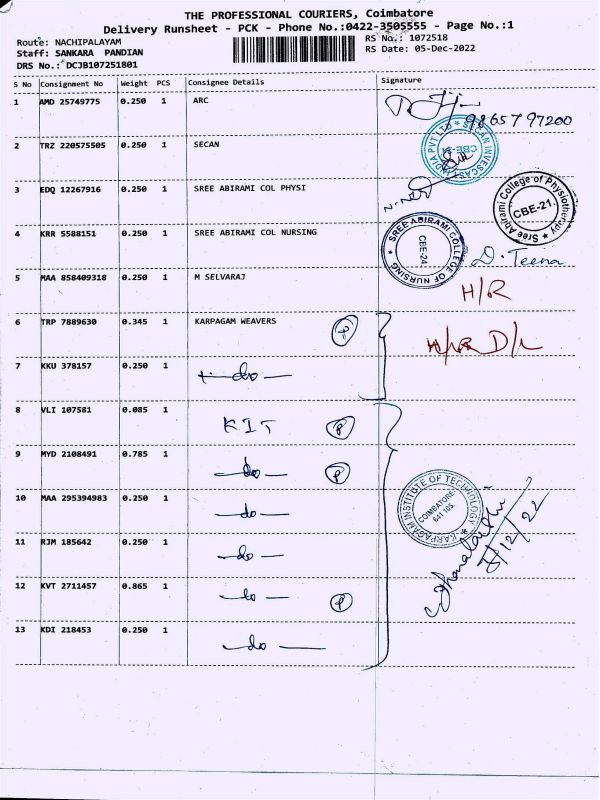 THE PROFESSIONAL COURIERS, Coimbatore
Delivery Runsheet - PCK - Phone No.:0422-3505555 - Page No.:1
Route: NACHIPALAYAM RS No.: 1072518
Staff: SANKARA PANDIAN RS Date: 05-Dec-2022
DRS No.: DCJB107251801
S No Consignment No Weight PCS Consignee Details Signature
1 AMD 25749775 0.250 1 ARC
9865797200
2 TRZ 220575505 0.250 1 SECAN
SECAN INVESCAST INDIA PVT LTD CBE-24
3 EDQ 12267916 0.250 1 SREE ABIRAMI COL PHYSI
Sree Abirami College of Physiotherapy CBE-21.
4 KRR 5588151 0.250 1 SREE ABIRAMI COL NURSING
SREE ABIRAMI COLLEGE OF NURSING CBE-24
D. Teena
5 MAA 858409318 0.250 1 M SELVARAJ
H/R
6 TRP 7889630 0.345 1 KARPAGAM WEAVERS P
D/L
7 KKU 378157 0.250 1 do
8 VLI 107581 0.085 1 KIT P
9 MYD 2108491 0.785 1 do P
10 MAA 295394983 0.250 1 do
KARPAGAM INSTITUTE OF TECHNOLOGY COIMBATORE 641 105.
11 RJM 185642 0.250 1 do
5/12/22
12 KVT 2711457 0.865 1 do P
13 KDI 218453 0.250 1 do